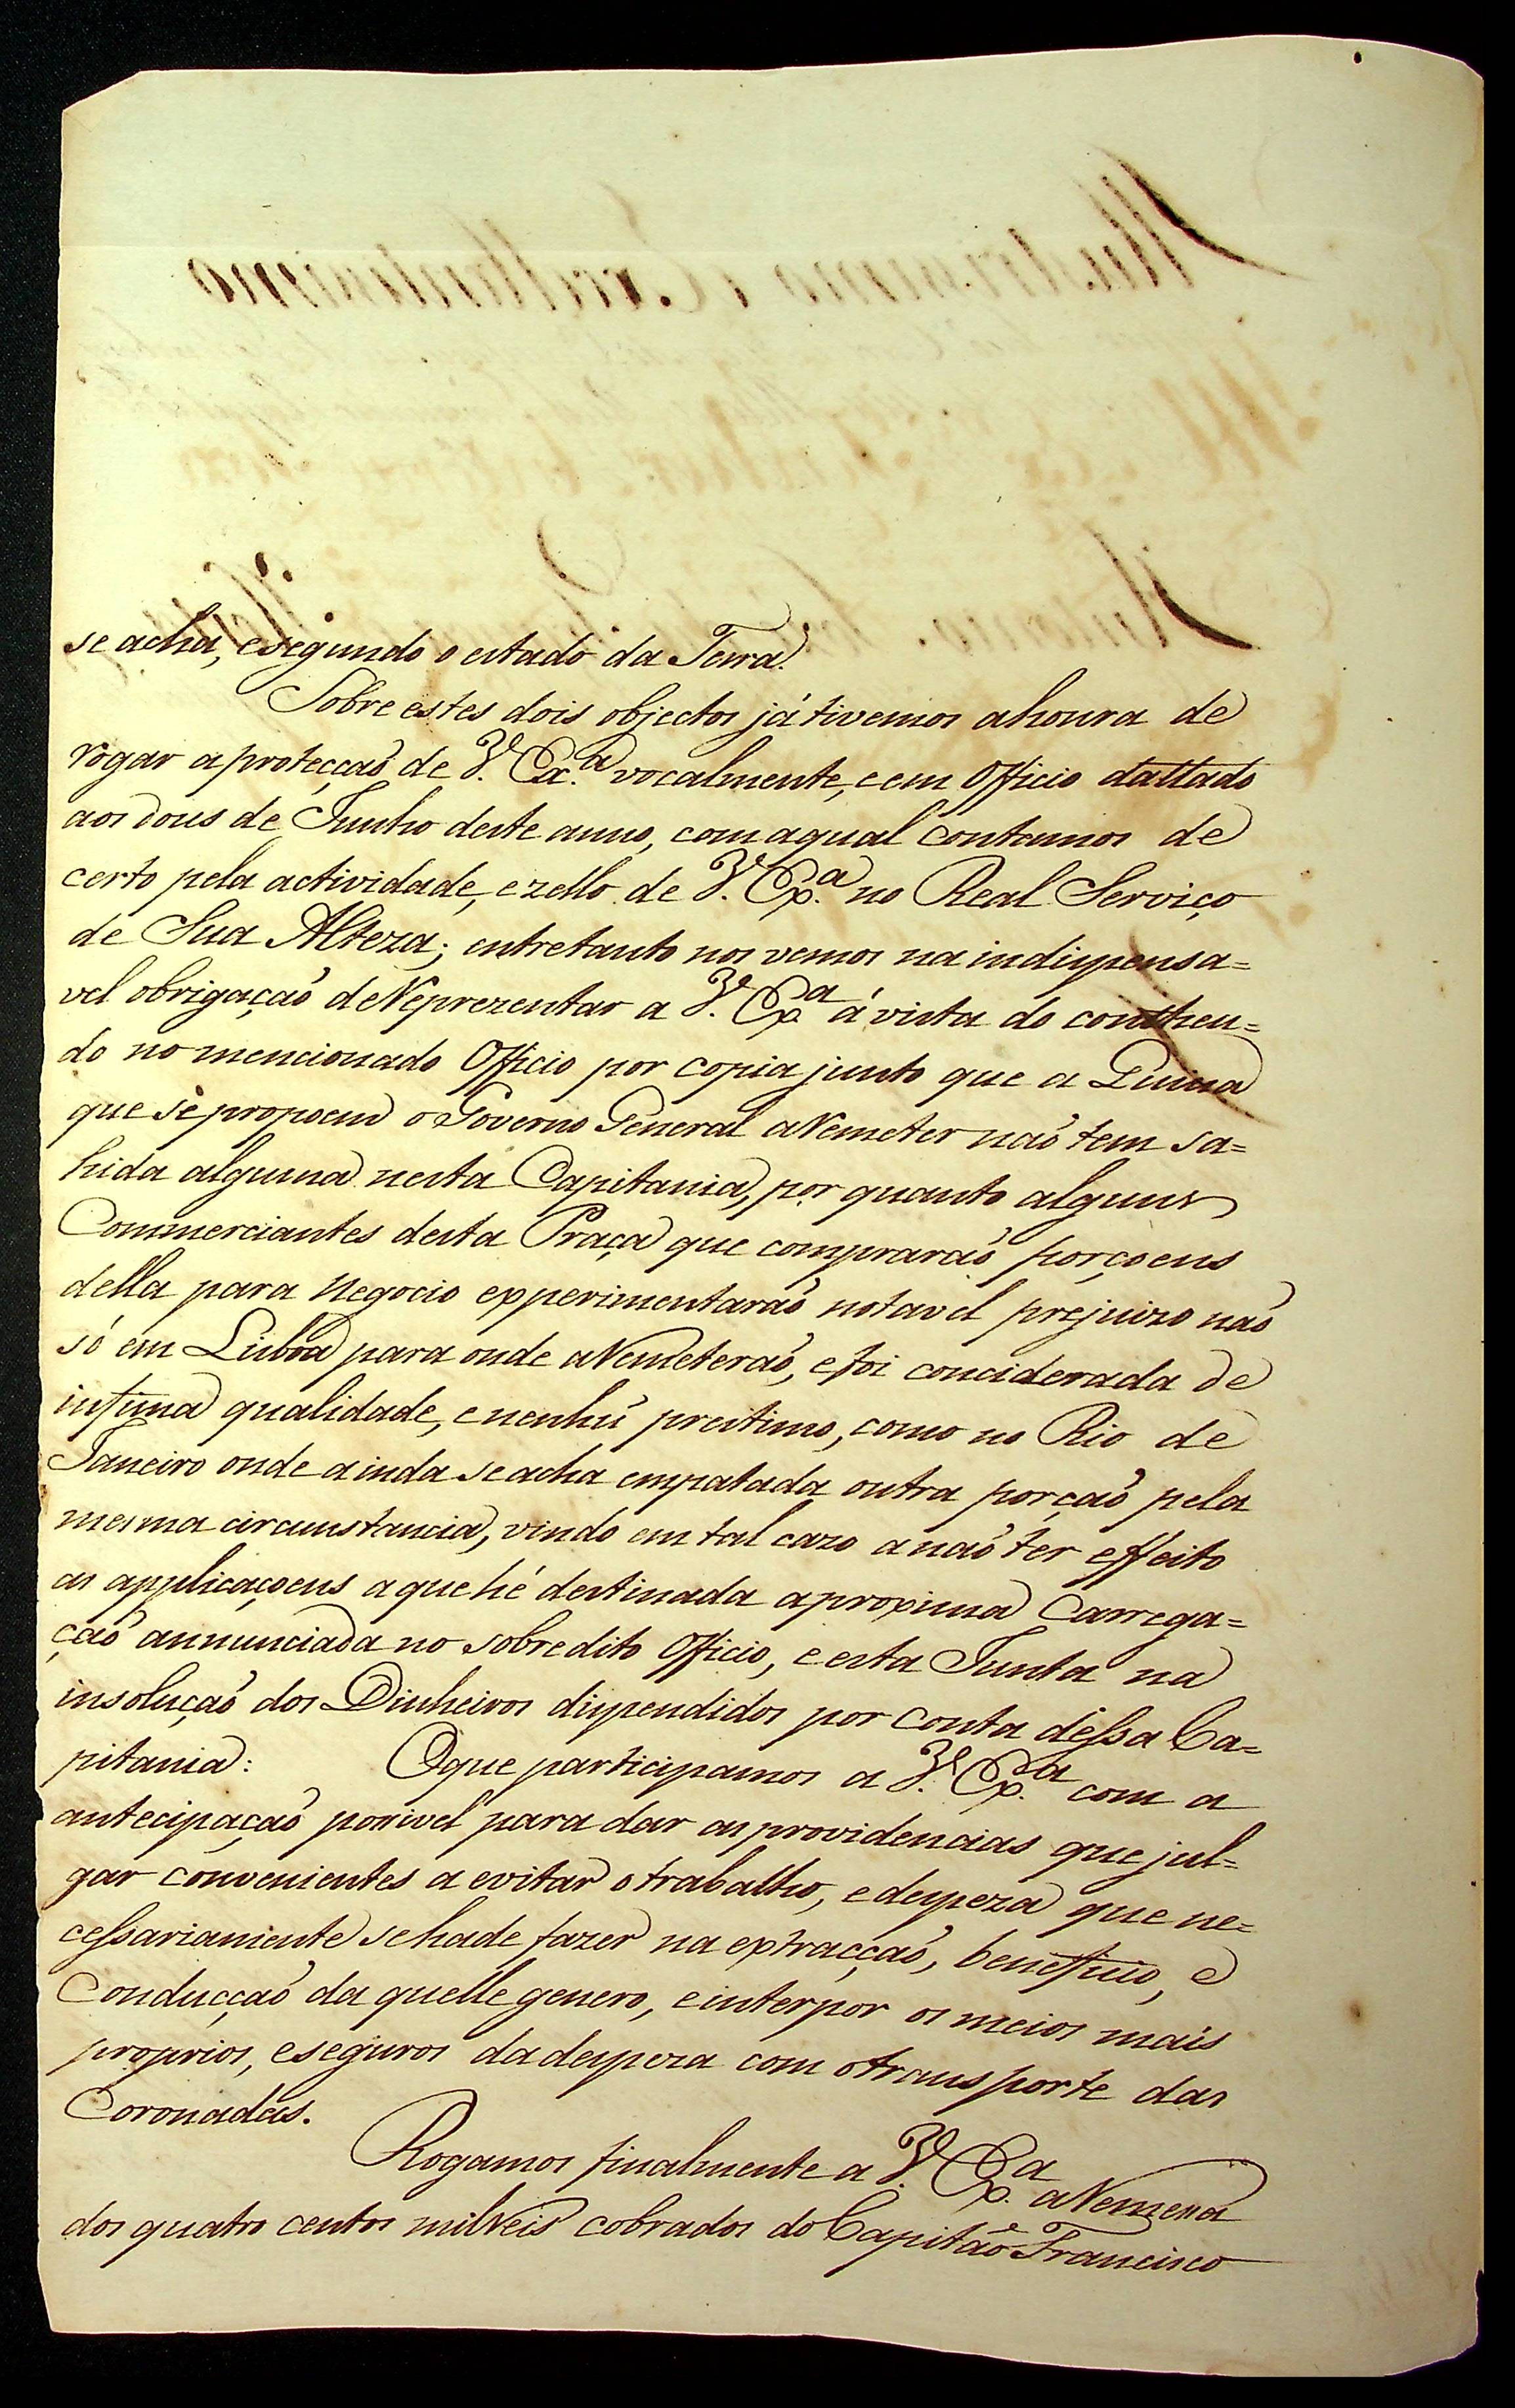 se acha, esegundo o estado da Terra.
Sobre estes dois objectos já tivemos ahonra de
rogar aprotecçaõ de V. Exa. vocalmente, e em Officio dattado
aos dous de Junho deste anno, com aqual contamos de
certo pela actividade, e zello de V. Exa. no Real Serviço
de Sua Alteza; entretanto nos vemos na indispensa=
vel obrigaçaõ deReprezentar a V. Exa. á vista do contheu=
do no mencionado Officio por copia junto que a Quina
que se propoem o Governo General aRemeter naõ tem sa=
hida alguma nesta Capitania, por quanto alguns
Commerciantes desta Praça que compraraõ porçoens
della para Negocio experimentaraõ notavel prejuizo naõ
só em Lisboa para onde aRemeteraõ, e foi conciderada de
infima qualidade, e nenhũ prestimo, como no Rio de
Janeiro onde ainda se acha empatada outra porçaõ pela
mesma circunstancia, vindo em tal cazo a naõ ter effeito
as applicaçoens a que hé destinada a proxima Carrega=
çaõ annunciada no sobredito Officio, e esta Junta na
insoluçaõ dos Dinheiros dispendidos por conta dessa Ca=
pitania: Oque participamos a V. Exa. com a
antecipaçaõ possivel para dar as providencias que jul=
gar convenientes a evitar o trabalho, e despeza que ne=
cessariamente se hade fazer na extracçaõ, beneficio, e
Conducçaõ da quelle genero, e interpor os meios mais
proprios, eseguros da despeza com o transporte das
Coronadas.
Rogamos finalmente a V. Exa. aRemessa
dos quatro centos milreis cobrados do Capitaõ Francisco